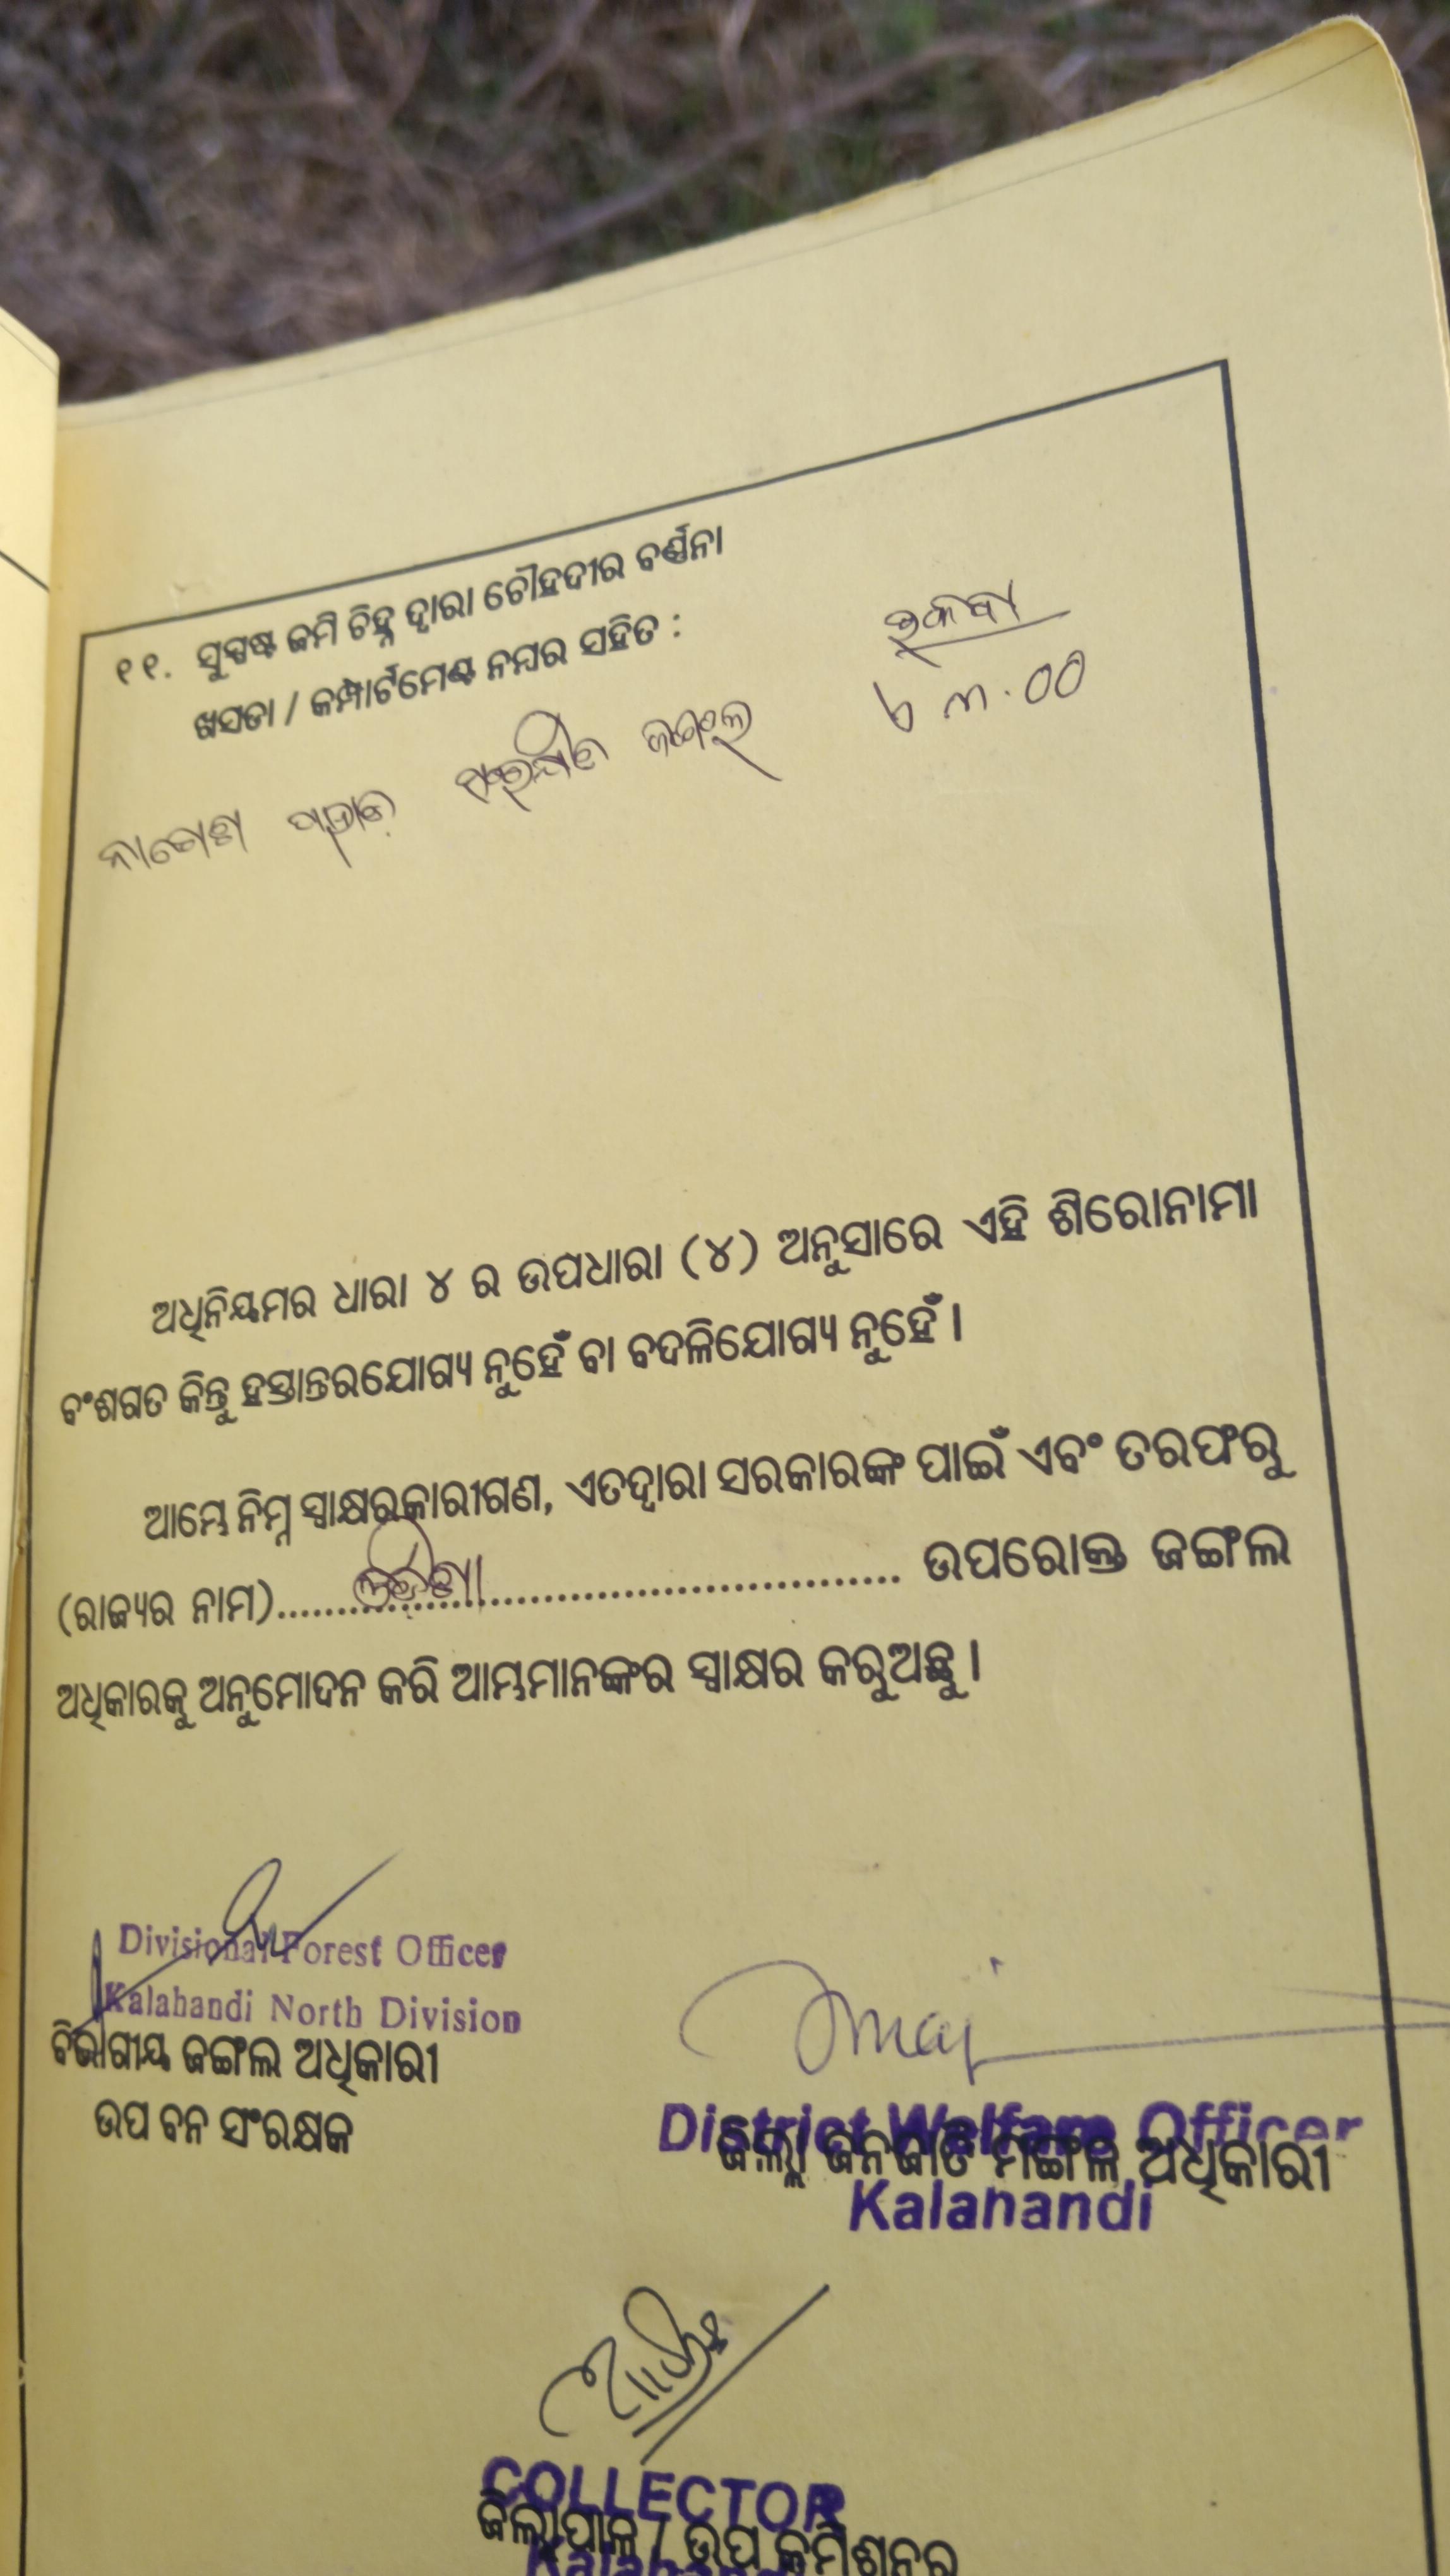 ୧୧. ସୁସ୍ପଷ୍ଟ ଜମି ଚିହ୍ନ ଦ୍ୱାରା ଚୌହଦୀର ବର୍ଣ୍ଣନା
ଖସଡା / କମ୍ପାର୍ଟମେଣ୍ଟ ନମ୍ବର ସହିତ :
ରକବା
ଜଙ୍ଗଲ
ଅଧିନିୟମର ଧାରା ୪ ର ଉପଧାରା (୪) ଅନୁସାରେ ଏହି ଶିରୋନାମା
ବଂଶଗତ କିନ୍ତୁ ହସ୍ତାନ୍ତରଯୋଗ୍ୟ ନୁହେଁ ବା ବଦଳିଯୋଗ୍ୟ ନୁହେଁ ।
ଆମ୍ଭେ ନିମ୍ନ ସ୍ୱାକ୍ଷରକାରୀଗଣ, ଏତଦ୍ୱାରା ସରକାରଙ୍କ ପାଇଁ ଏବଂ ତରଫରୁ
(ରାଜ୍ୟର ନାମ)............ଓଡ଼ିଶା............ ଉପରୋକ୍ତ ଜଙ୍ଗଲ
ଅଧିକାରକୁ ଅନୁମୋଦନ କରି ଆମ୍ଭମାନଙ୍କର ସ୍ୱାକ୍ଷର କରୁଅଛୁ ।
Divisional Forest Officer
Kalahandi North Division
ବିଭାଗୀୟ ଜଙ୍ଗଲ ଅଧିକାରୀ
ଉପ ବନ ସଂରକ୍ଷକ
District Welfare Officer
ଜିଲ୍ଲା ଜନଜାତି ମଙ୍ଗଳ ଅଧିକାରୀ
Kalahandi
COLLECTOR
ଜିଲ୍ଲାପାଳ / ଉପ କମିଶନର